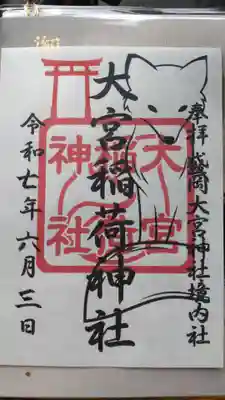 奉拝 盛岡大宮神社境内社
大宮稲荷神社
令和七年六月三日
大宮
稲荷
神社